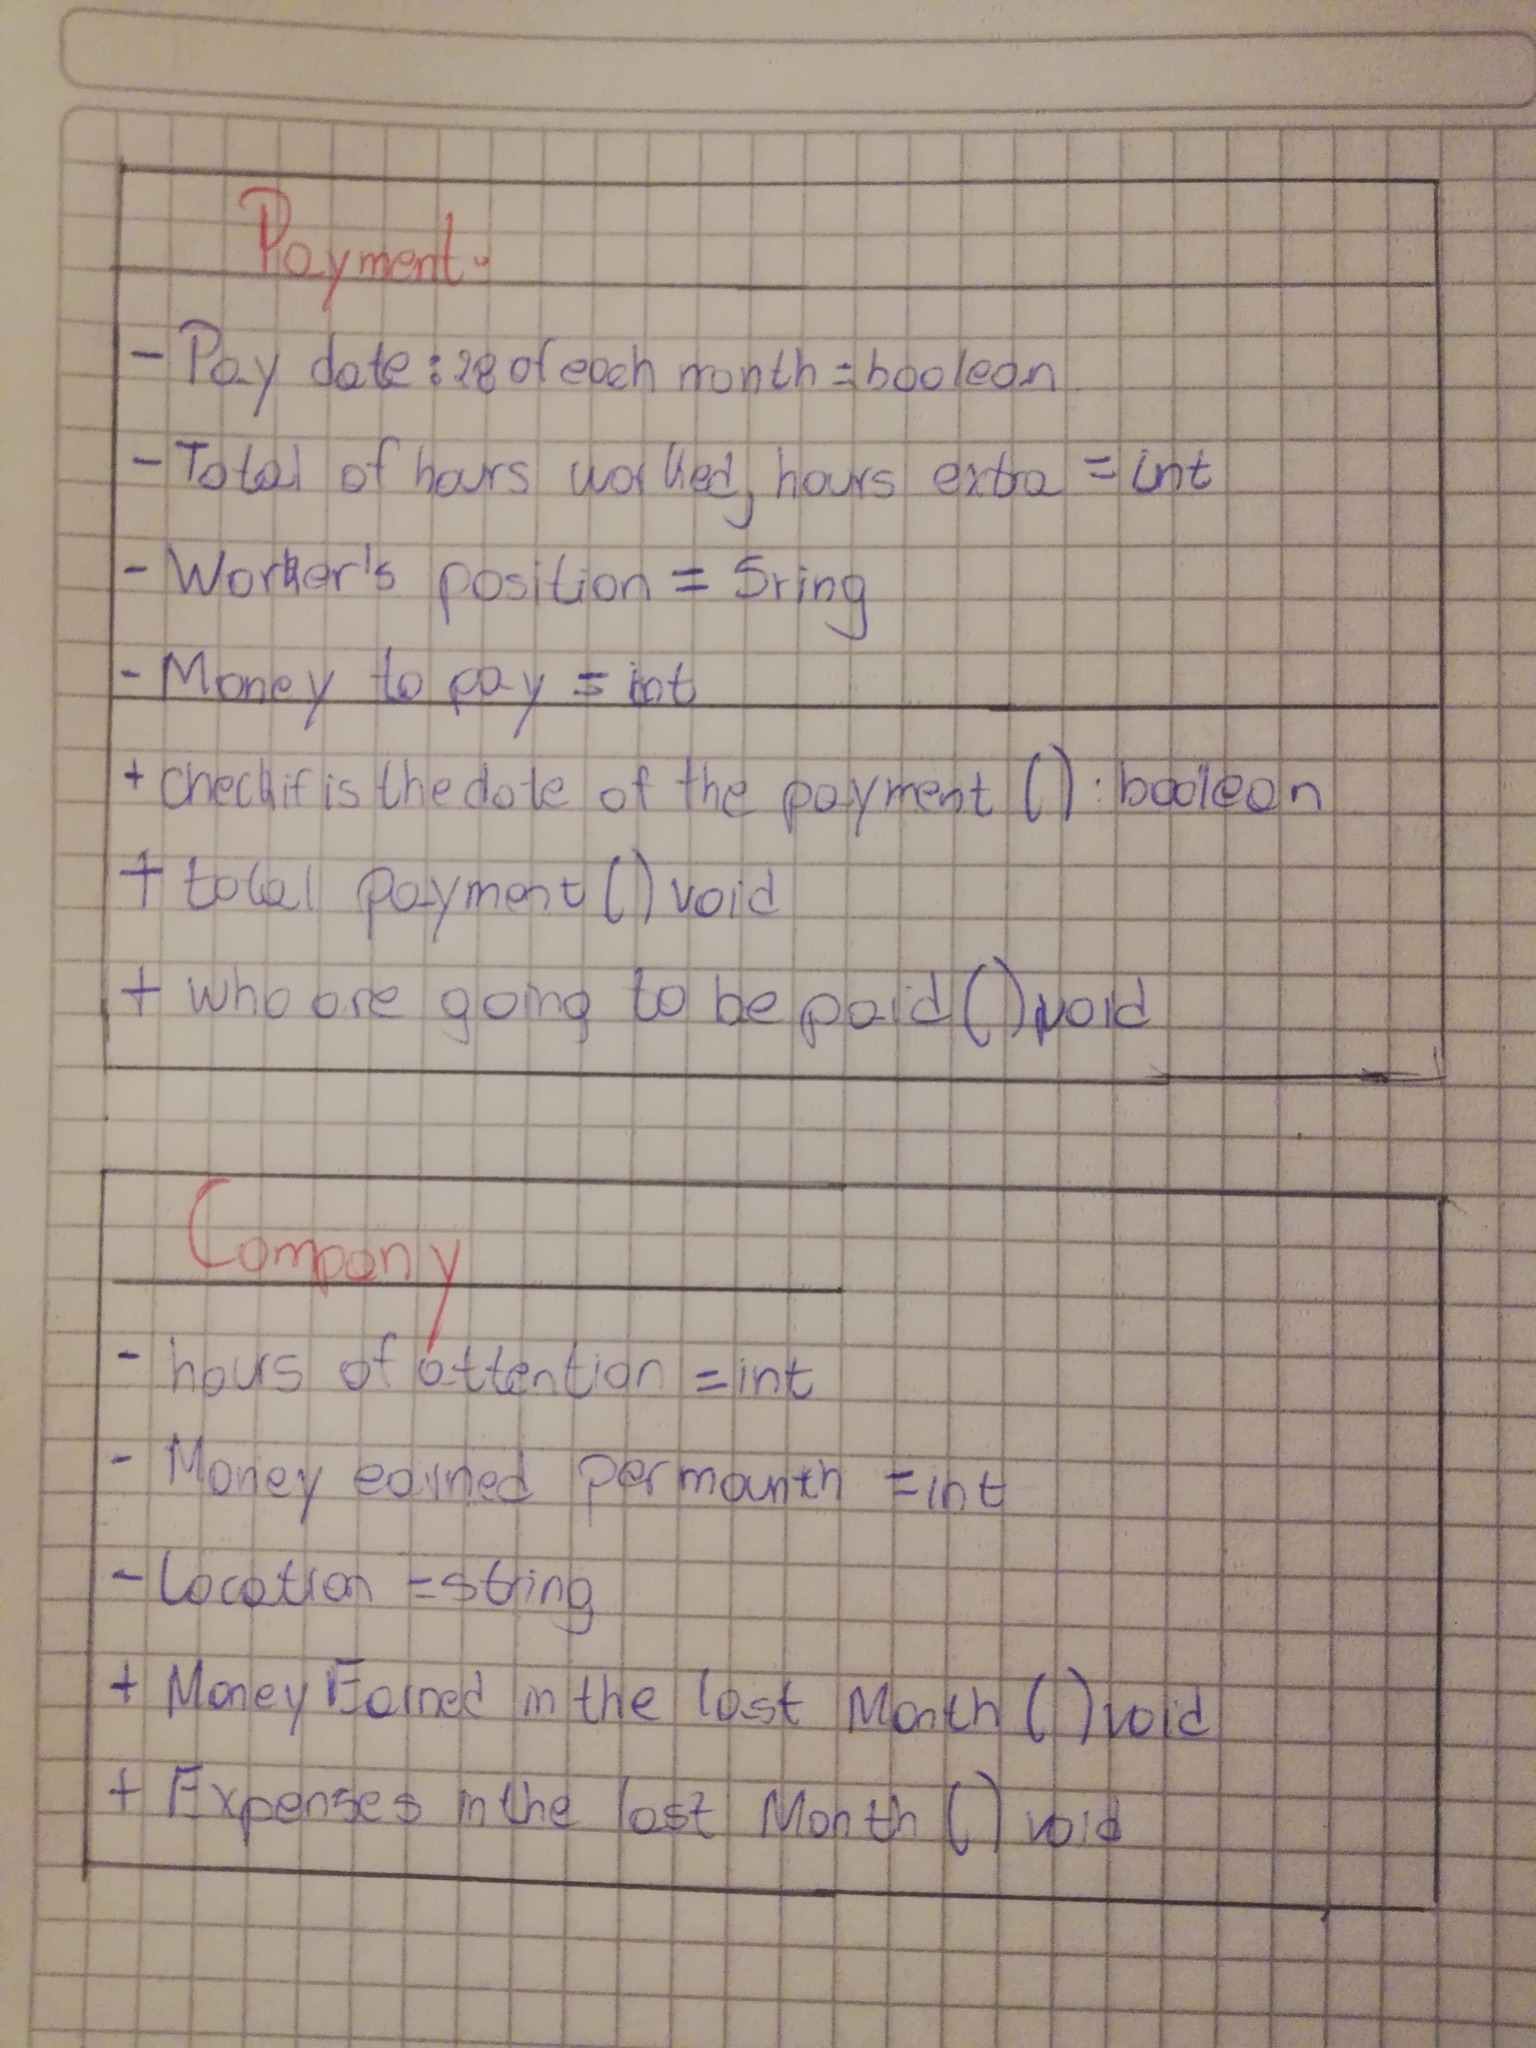 Payment.
- Pay date: 28 of each month = boolean
- Total of hours worked, hours extra = int
- Worker's position = Sring
- Money to pay = int
+ check if is the date of the payment () : boolean
+ total payment () void
+ who are going to be paid () void
Company
- hours of attention = int
- Money earned per mounth = int
- Location = string
+ Money Earned in the last Month () void
+ Expenses in the last Month () void